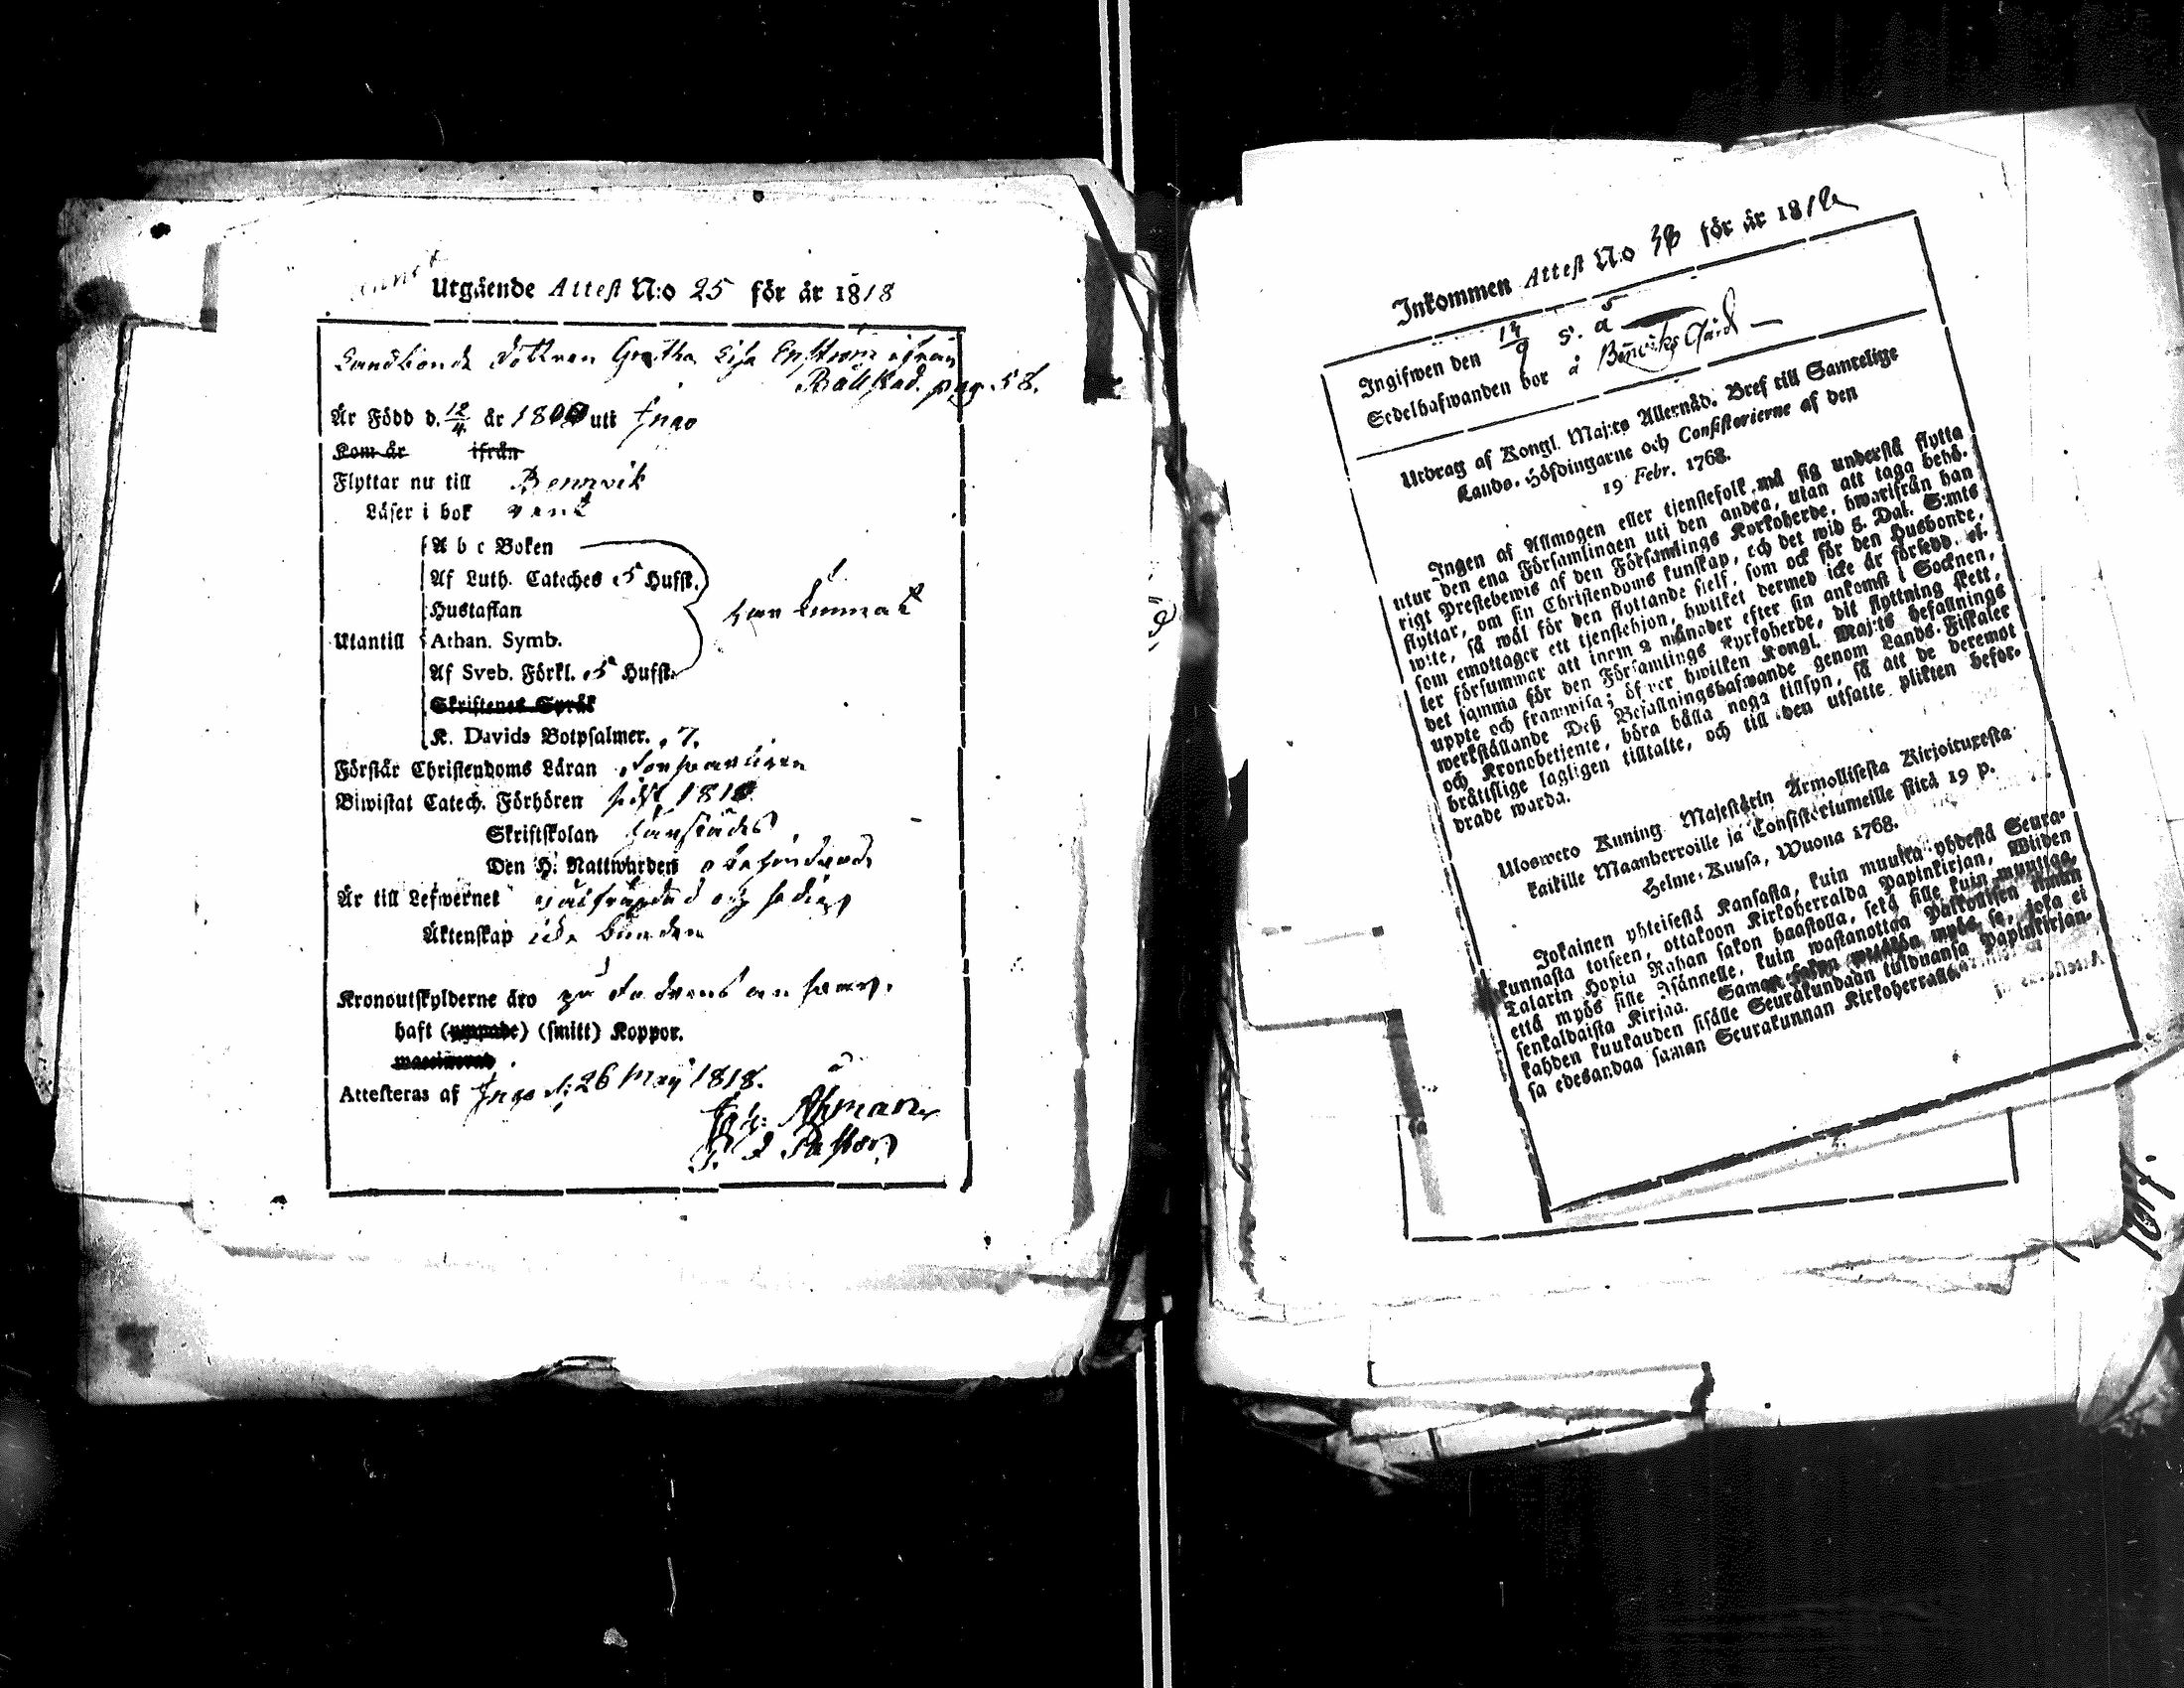 Utgående Attest N:o 25 för år 1818
Landbonde dottren Gretha Lisa Enström ifrån
Bällstad. pag. 58.
Är Född d. 12/4 år 1800 uti Ingo
Kom år ifrån
Flyttar nu till Bennvik
Läser i bok rent
A b c Boken
Af Luth. Cateches 5 Hufst.
Hustaflan
Utantill Athan. Symb.
Af Sveb. Förkl. 5 Hufst.
Skriftenes Språk
K. Davids Botpsalmer. 7.
Förstår Christendoms Läran försvarligen
Biwistat Catech. Förhören sidst 1818
Skriftskolan
Den H. Nattwarden obehindrad
Är till Lefwernet wälfrägdad och sedig
Äktenskap icke bunden
Kronoutskylderne äro på fadrens ansvar.
haft (ympade) (smitt) Koppor.
waccinerad
Attesteras af Ingo d: 26 Maij 1818.
Ahman
Pastor
Inkommen Attest N:o för år 181
Ingifwen den s. å
Sedelhafwanden bor å Bennviks Gård
Utdrag af Kongl. Maj:ts Allernåd. Bref till Samtelige
Lands-Höfdingarne och Consistorierne af den
19 Febr. 1768.
Ingen af Allmogen eller tjenstefolk må sig understå flytta
utur den ena Församlingen uti den andra, utan att taga behö-
rigt Prestebewis af den Församlings Kyrkoherde, hwarifrån han
flyttar, om sin Christendoms kunskap, och det wid 5. Dal. S:mts
wite, så wäl för den flyttande sielf, som ock för den Husbonde,
som emottager ett tjenstehjon, hwilket dermed icke är försedd, el-
ler försummar att inom 2 månader efter sin ankomst i Socknen,
det samma för den Församlings Kyrkoherde, dit flyttning skett,
uppte och framwisa; öfwer hwilken Kongl. Maj:ts befallnings
werkställande Deß Befallningshafwande genom Lands-Fiskaler
och Kronobetjente, böra hålla noga tillsyn, så att de deremot
bråttslige lagligen tilltalte, och till den utsatte plikten befor-
drade warda.
Ulosweto Kuning. Majestätin Armollisesta Kirjoituxesta
kaikille Maanherroille ja Consistoriumeille siitä 19 p.
Helme-Kuusa, Wuona 1768.
Jokainen yhteisestä Kansasta, kuin muutta yhdestä Seura-
kunnasta toiseen, ottakoon Kirkoherralda Papinkirjan, Wiiden
Talarin Hopia Rahan sakon haastolla, sekä sille kuin muuttaa,
että myös sille Isännelle, kuin wastanottaa Palkollisen ilman
senkaldaista Kirjaa. Saman sakon wetäkön myös se, joka ei
kahden kuukauden sisälle Seurakundaan tulduansa Papinkirjan-
sa edesandaa saman Seurakunnan Kirkoherralla